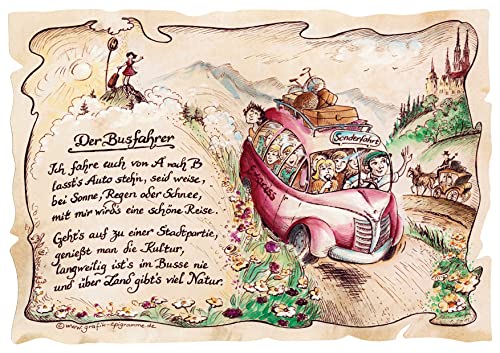 Der Busfahrer
Ich fahre euch von A nach B
lasst's Auto stehn, seid weise,
bei Sonne, Regen oder Schnee,
mit mir wird's eine schöne Reise.
Geht's auf zu einer Stadtpartie,
genießt man die Kultur,
langweilig ist's im Busse nie
und über Land gibt's viel Natur.
Sonderfahrt
©www.grafik-epigramme.de